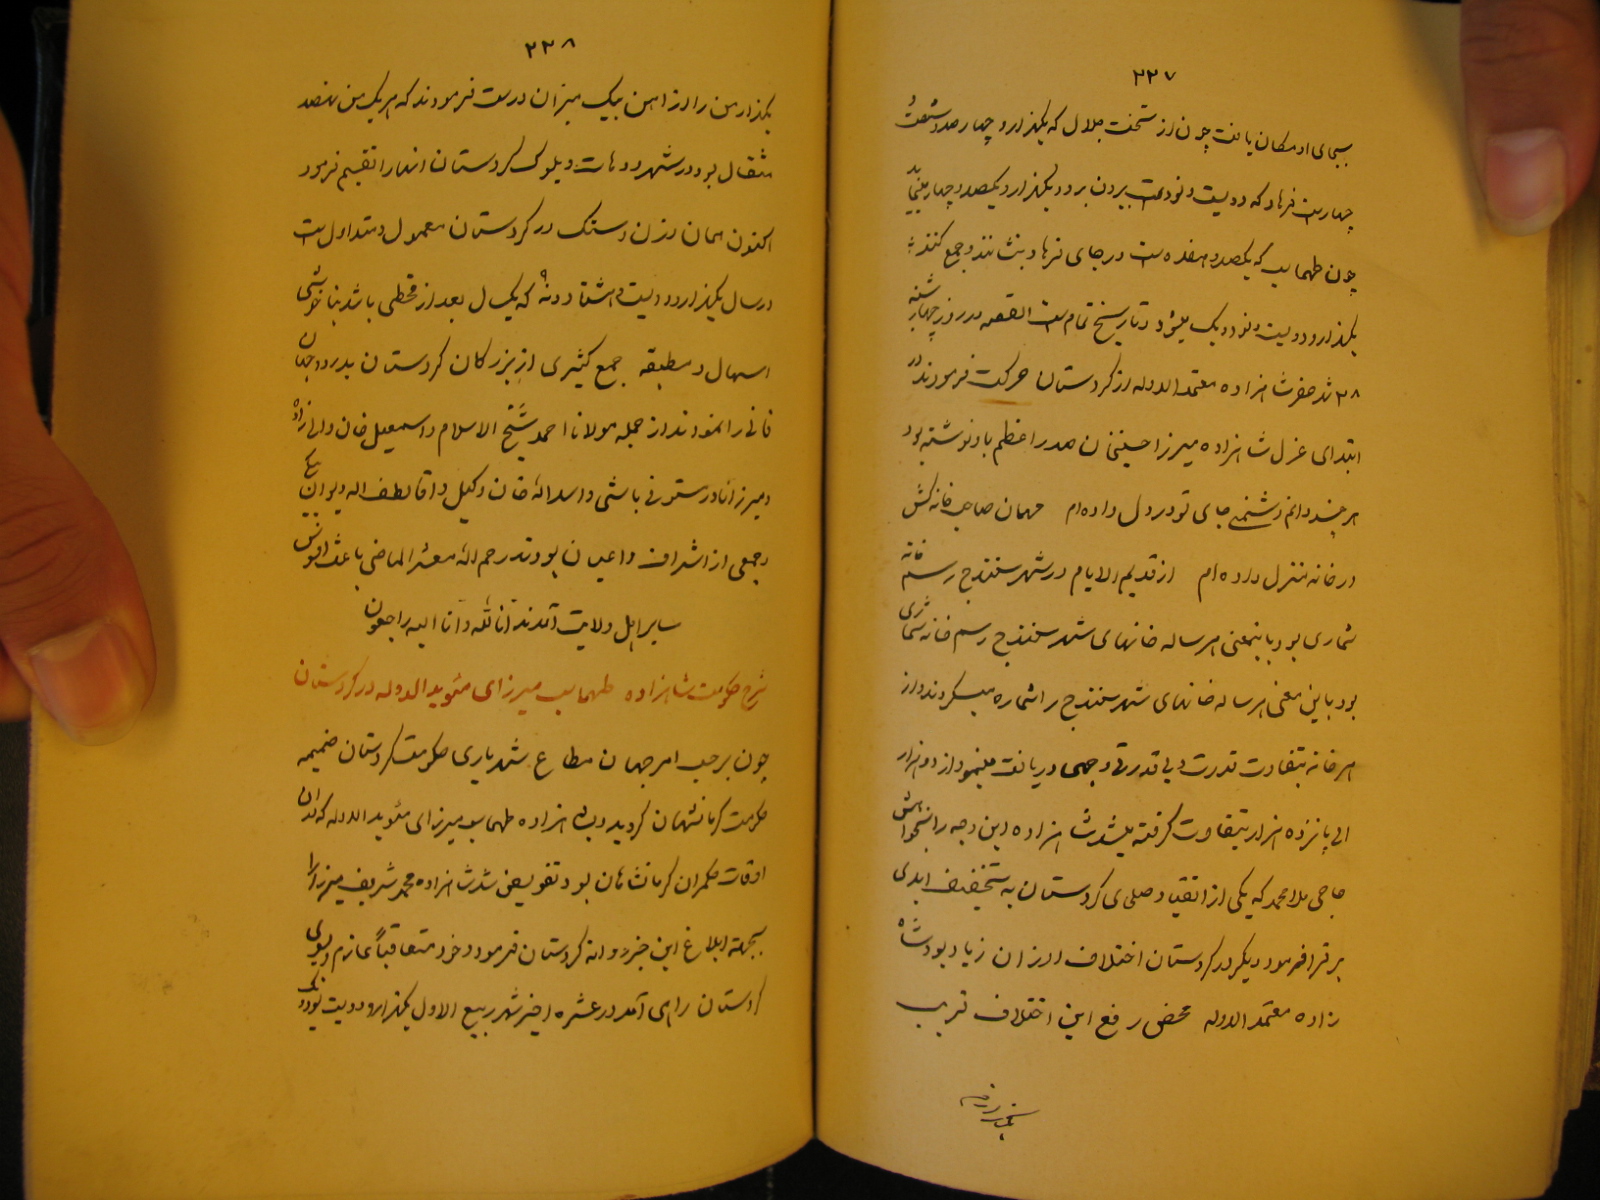 ۲۲۷
بجای او مکان یافت چون از تخت جلال که یکهزار و چهارصد و شصت و
چهار است فرهاد که دویست و نود است بیرون برود یکهزار و یکصد و چهار میماند
چون طهماسب که یکصد و هفده است در جای فرهاد بنشانند و جمع کنند
یکهزار و دویست و نود و یک میشود و تاریخ تمام است القصه در روز چهارشنبه
۲۸ حضرت شاهزاده معتمد الدوله از کردستان حرکت فرمودند در
ابتدای عزل شاهزاده میرزا حسینخان صدر اعظم باو نوشته بود
هر چند دانم دشمنی جای تو در دل داده‌ام مهمان صاحب خانه کش
در خانه منزل داده‌ام از قدیم الایام در شهر سنندج رسم خانه
شماری بود باینمعنی هر ساله خانهای شهر سنندج رسم خانه شماری
بود باین معنی هر ساله خانهای شهر سنندج را شماره میکردند و از
هر خانه بتفاوت قدرت و بی قدرتی وجهی دریافت مینمود از دو هزار
الی پانزده هزار بتفاوت گرفته میشد شاهزاده این وجه را بخواهش
حاجی ملا محمد که یکی از اتقیا و صلحای کردستان به تخفیف ابدی
برقرار فرمود دیگر در کردستان اختلاف اوزان زیاد بود شاه
زاده معتمد الدوله محض رفع این اختلاف قریب
یکهزار من
۲۲۸
یکهزار من را از آهن بیک میزان درست فرمودند که هر یک من ششصد
مثقال بود در شهر و دهات و بلوک کردستان آنها را تقسیم فرمود
اکنون همان وزن و سنگ در کردستان معمول و متداول است
در سال یکهزار و دویست و هشتاد و نه که یکسال بعد از قحطی باشد بناخوشی
اسهال و مطبقه جمع کثیری از بزرگان کردستان بدرود جهان
فانی را نمودند از جمله مولانا احمد شیخ الاسلام و اسمعیل خان والی زاده
و میرزا مستوفی باشی و اسد الله خان وکیل و آقا لطف الله دیوان بیگی
و جمعی از اشراف و اعیان بودند رحم الله معشر الماضی باعث افسوس
سایر اهل ولایت آمدند انا لله و انا الیه راجعون
شرح حکومت شاهزاده طهماسب میرزای مؤید الدوله در کردستان
چون بر حسب امر جهان مطاع شهریاری حکومت کردستان ضمیمه
حکومت کرمانشهان گردید و بشاهزاده طهماسب میرزای مؤید الدوله که در آن
اوقات حکمران کرمانشاهان بود تفویض شد شاهزاده محمد شریف میرزا را
بجهة ابلاغ این خبر روانه کردستان فرمود و خود متعاقباً عازم و بسوی
کردستان راهی آمد در عشره اخیر شهر ربیع الاول یکهزار و دویست و نود و یک